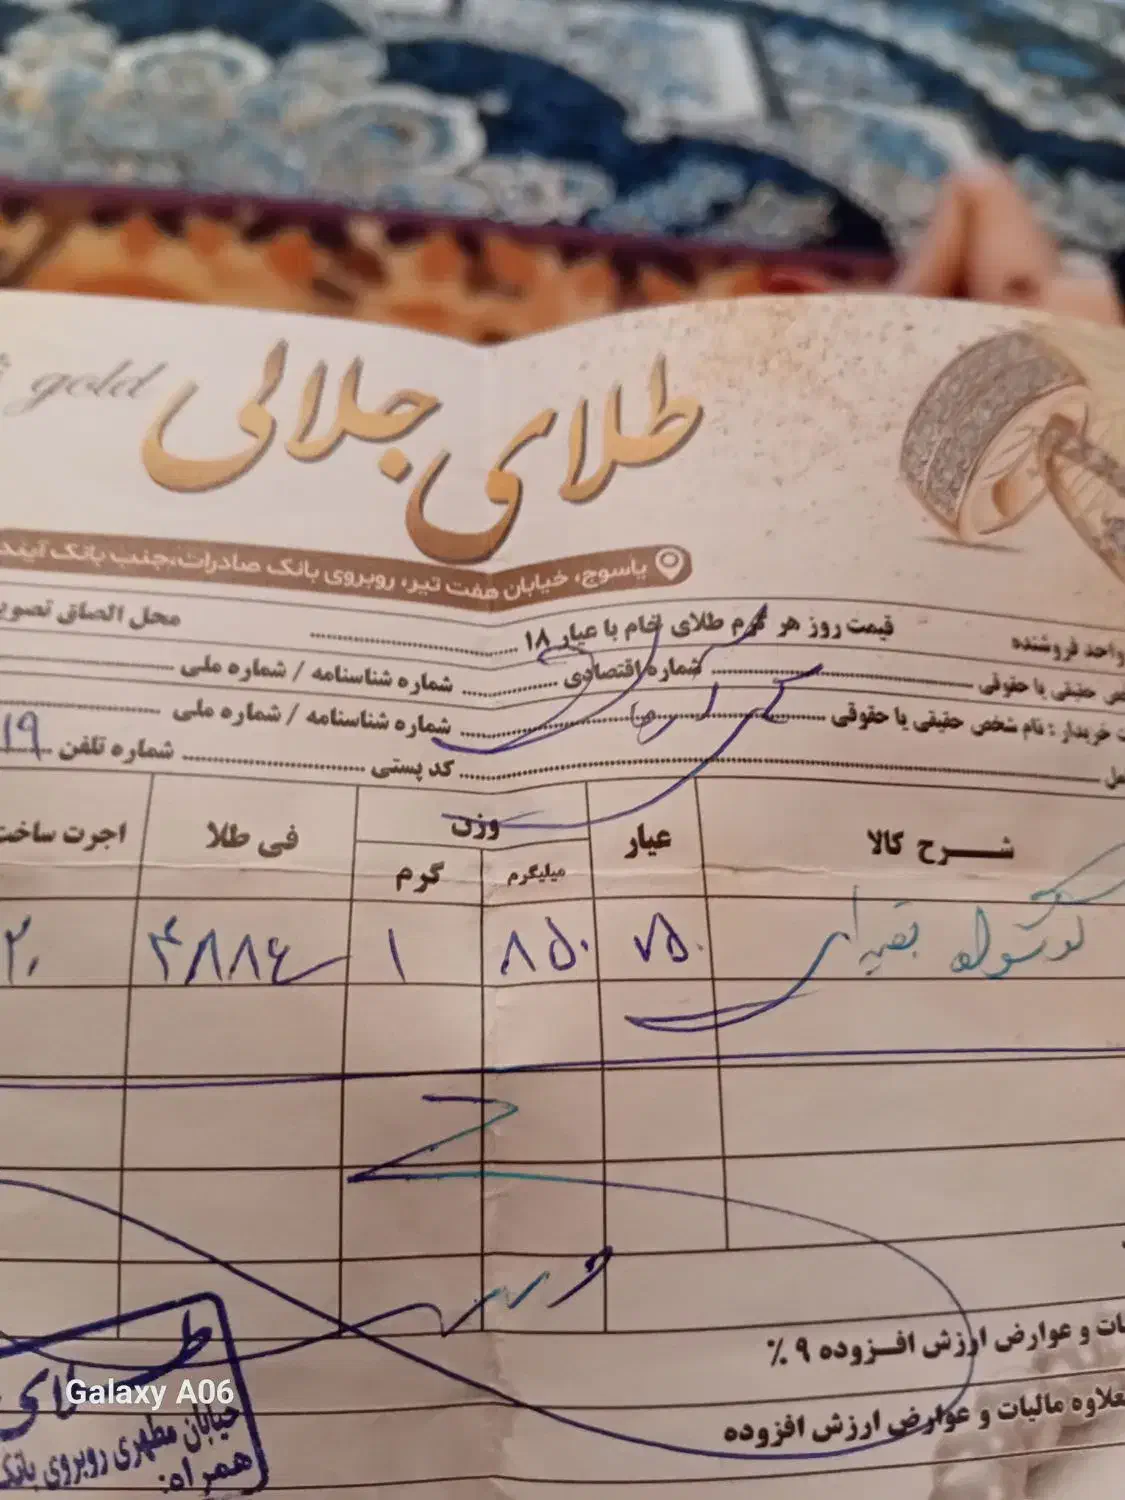 gold
طلای جلالی
یاسوج، خیابان هفت تیر، روبروی بانک صادرات،جنب بانک آیند
قیمت روز هر گرم طلای خام با عیار ۱۸ محل الصاق تصویر
واحد فروشنده
ص حقیقی یا حقوقی شماره اقتصادی شماره شناسنامه / شماره ملی
ت خریدار : نام شخص حقیقی یا حقوقی شماره شناسنامه / شماره ملی
کد پستی شماره تلفن ۱۹
شرح کالا عیار وزن فی طلا اجرت ساخت
میلیگرم گرم
۷۵۰ ۸۵۰ ۱ ۴۸۸۶ ۲۰
ات و عوارض ارزش افزوده ۹٪
علاوه مالیات و عوارض ارزش افزوده
خیابان مطهری روبروی بانک
همراه:
Galaxy A06